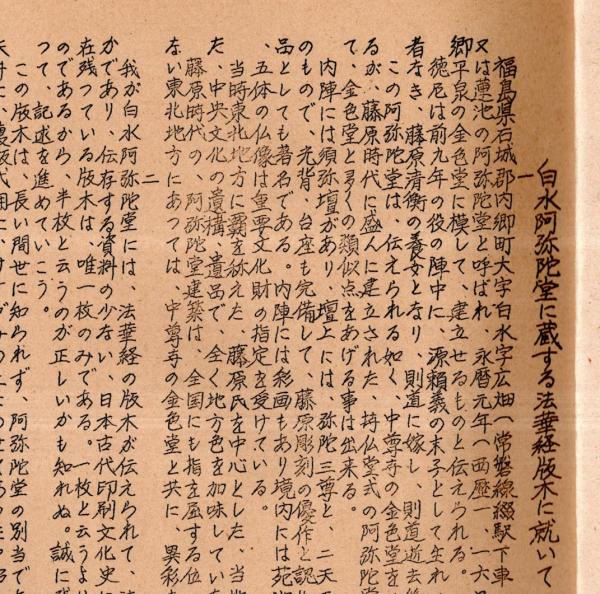 白水阿弥陀堂に蔵する法華経版木に就いて
一
福島県石城郡内郷町大字白水字広畑(常磐線綴駅下車
又は蓮池の阿弥陀堂と呼ばれ、永暦元年(西歴一、一六
郷平泉の金色堂に模して、建立せるものと伝えられる。
徳尼は前九年の役の陣中に、源頼義の末子として生れ
者なき、藤原清衡の養女となり、則道に嫁し、則道逝去後
この阿弥陀堂は、伝えられる如く、中尊寺の金色堂を
るが、藤原時代に盛んに建立された、持仏堂式の阿弥陀堂
て、金色堂と多くの類似点をあげる事は出来る。
内陣には須弥壇があり、壇上には、弥陀三尊と、二天
のもので、光背、台座も完備して、藤原彫刻の優作と認
品としても著名である。内陣には彩画もあり境内には苑
、五体の仏像は重要文化財の指定を受けている。
当時東北地方に覇を称えた、藤原氏を中心とした、当
た、中央文化の遺構、遺品で、全く地方色を加味してい
藤原時代の、阿弥陀堂建築は、全国にも指を屈する位
ない東北地方にあっては、中尊寺の金色堂と共に、異彩
二
我が白水阿弥陀堂には、法華経の版木が伝えられて、
かであり、伝存する資料の少ない、日本古代印刷文化史に
在残っている版木は、唯一枚のみである。一枚と云うよ
のであるから、半枚と云うのが正しいかも知れぬ。誠に
つて、記述を進めていこう。
この版木は、長い間世に知られず、阿弥陀堂の別当で